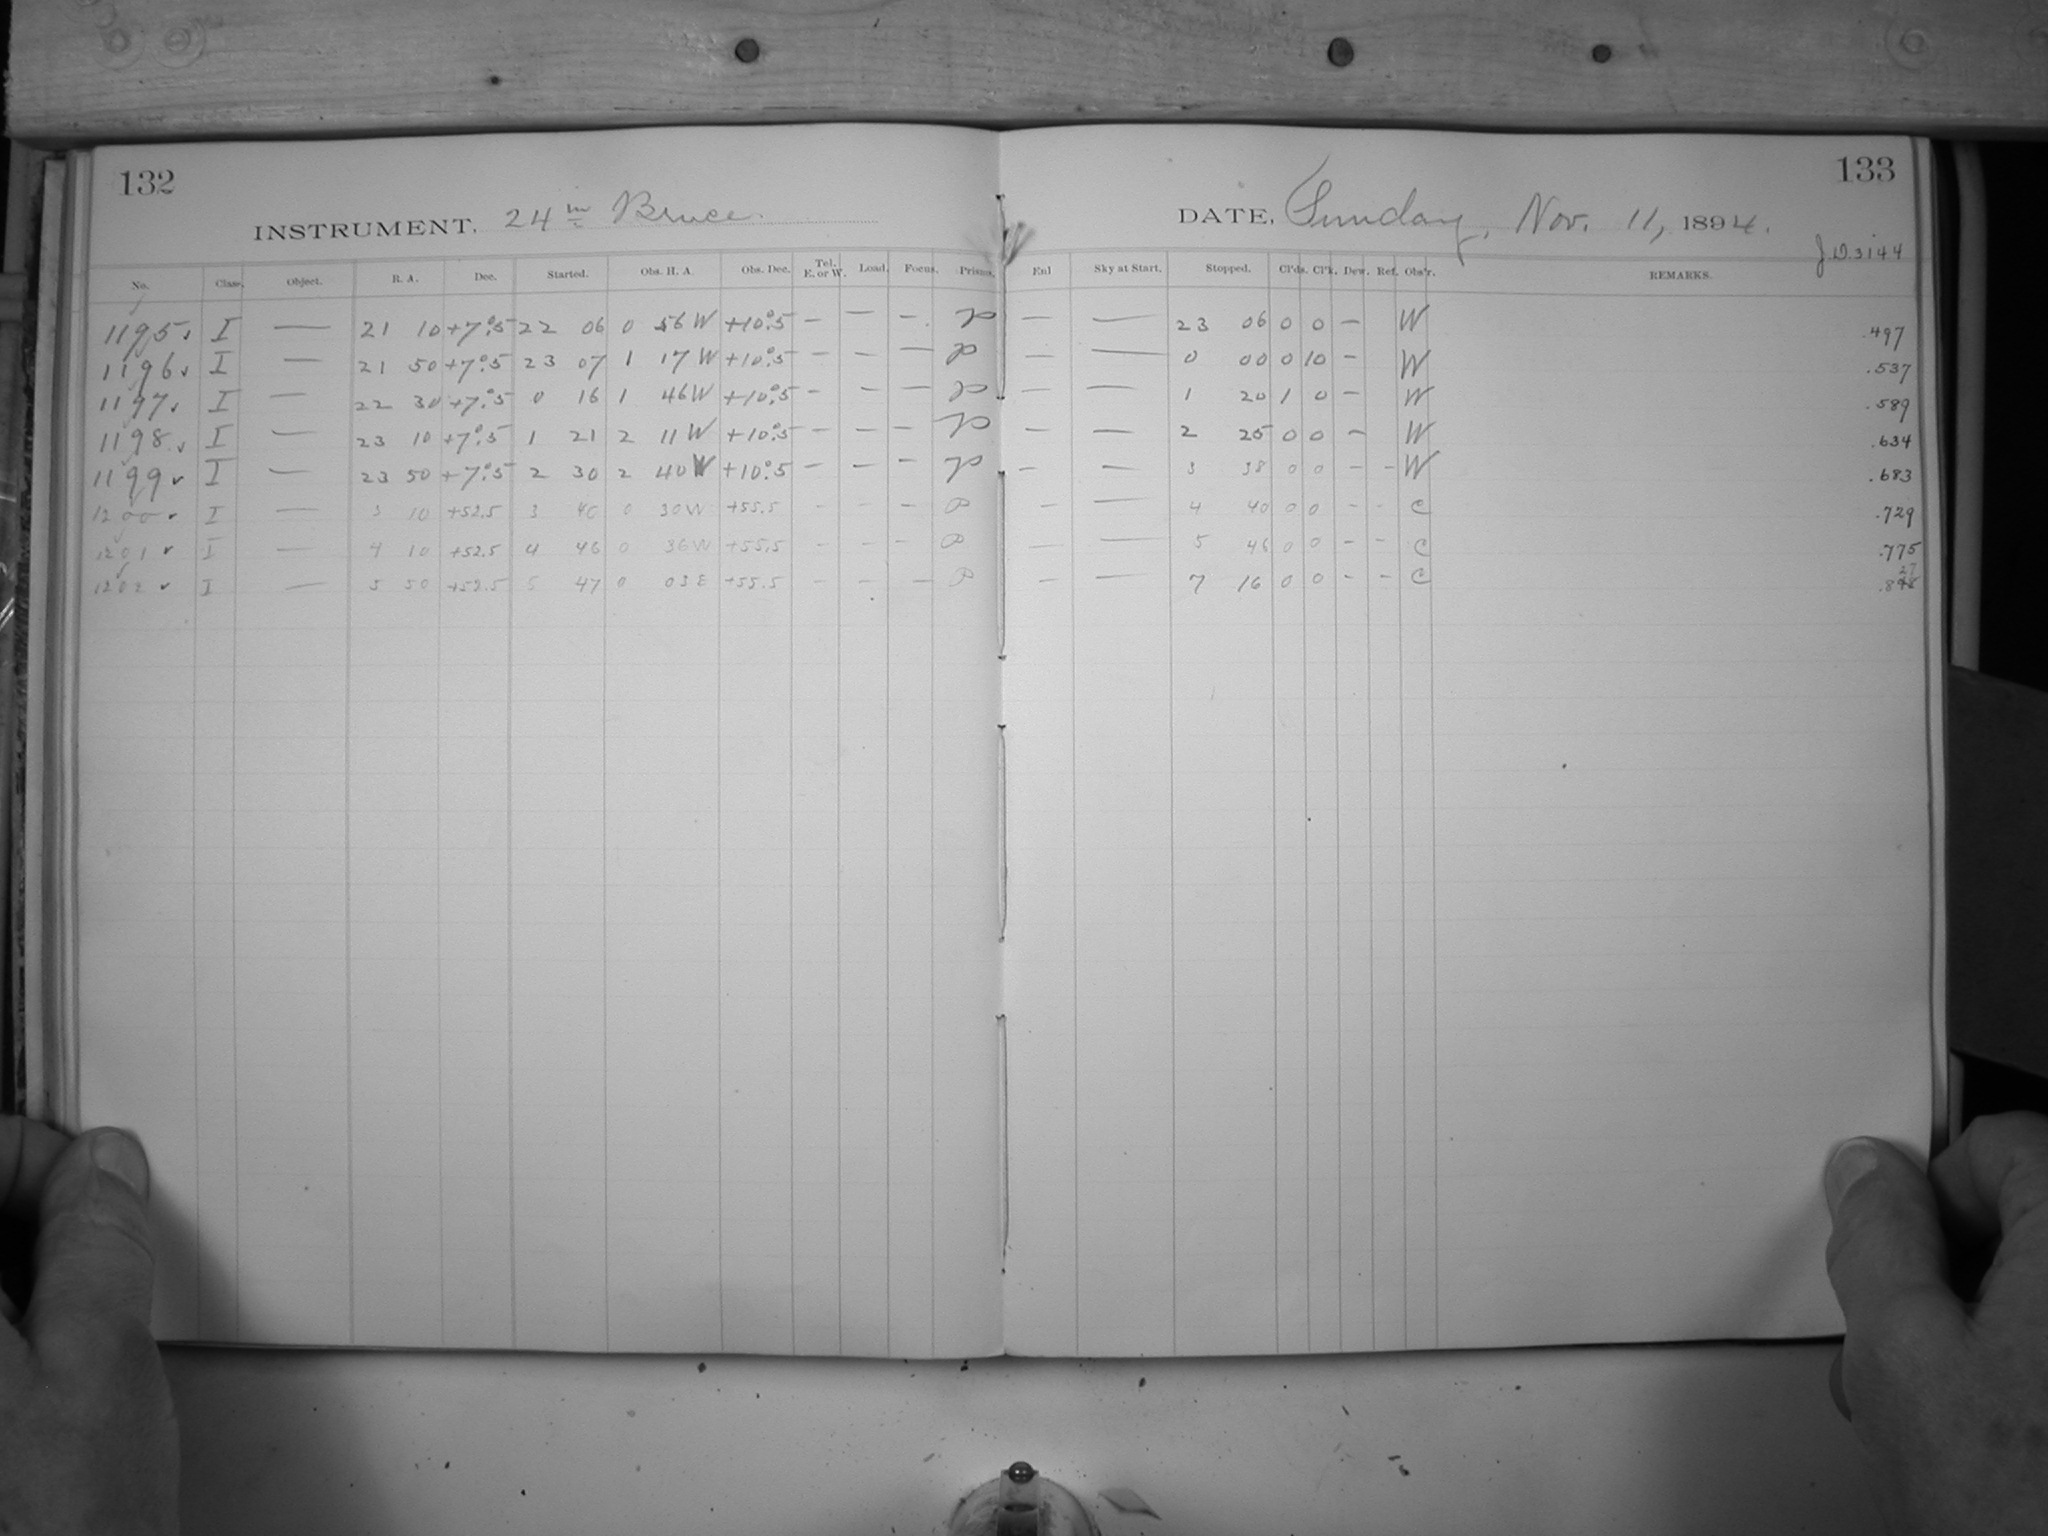 132
INSTRUMENT, 24 in Bruce.
No. Class. Object. R. A. Dec. Started. Obs. H. A. Obs. Dec. Tel. E. or W. Load. Focus. Prisms.
1195 I — 21 10 +7°.5 22 06 0 56 W +10°.5 — — — P
1196 I — 21 50 +7°.5 23 07 1 17 W +10°.5 — — — P
1197 I — 22 30 +7°.5 0 16 1 46 W +10°.5 — — — P
1198 I — 23 10 +7°.5 1 21 2 11 W +10°.5 — — — P
1199 I — 23 50 +7°.5 2 30 2 40 W +10°.5 — — — P
1200 I — 3 10 +52.5 3 40 0 30 W +55.5 — — — P
1201 I — 4 10 +52.5 4 46 0 36 W +55.5 — — — P
1202 I — 5 50 +52.5 5 47 0 03 E +55.5 — — — P
133
DATE, Sunday, Nov. 11, 1894.
J.D. 3144
Enl Sky at Start. Stopped. Cl'ds. Cl'k. Dew. Ref. Obs'r. REMARKS.
— — 23 06 0 0 — W .497
— — 0 00 0 10 — W .537
— — 1 20 1 0 — W .589
— — 2 25 0 0 — W .634
— — 3 38 0 0 — — W .683
— — 4 40 0 0 — — C .729
— — 5 46 0 0 — — C .775
27
— — 7 16 0 0 — — C